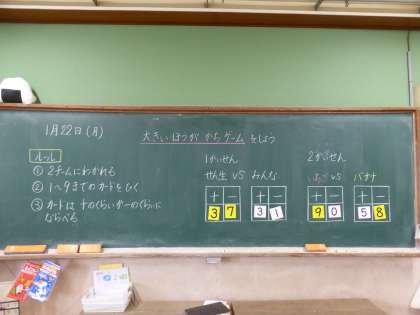 1月22日(月)
大きいほうが かちゲーム をしよう
ルール
① 2チームにわかれる
② 1〜9までのカードをひく
③ カードは 十のくらいか一のくらいに
ならべる
1かいせん
せん生 VS みんな
十 一 十 一
3 7 3 1
2かいせん
VS バナナ
十 一 十 一
9 0 5 8